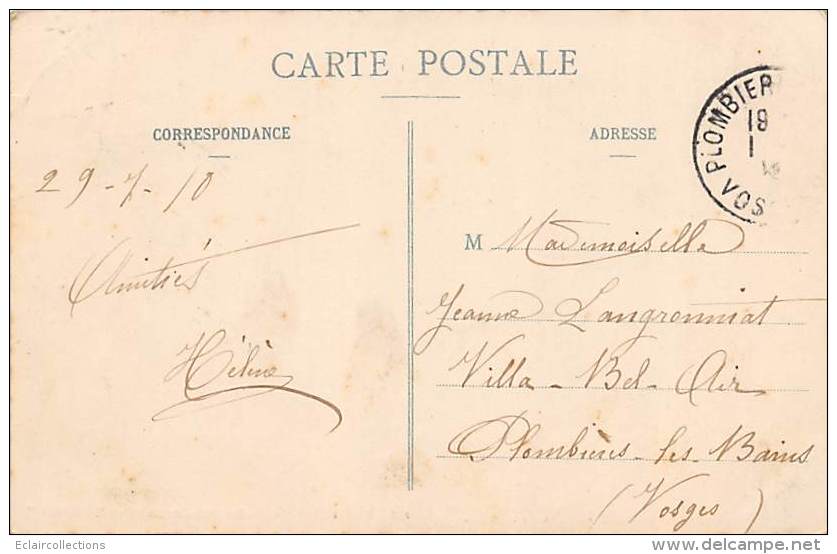 CARTE POSTALE
CORRESPONDANCE
ADRESSE
PLOMBIER
19
1
VOS
29-7-10
Amitiés
Hélène
M Mademoiselle
Jeanne Langronniat
Villa-Bel-Air
Plombières-les-Bains
(Vosges)
Eclaircollections
www.delcampe.net